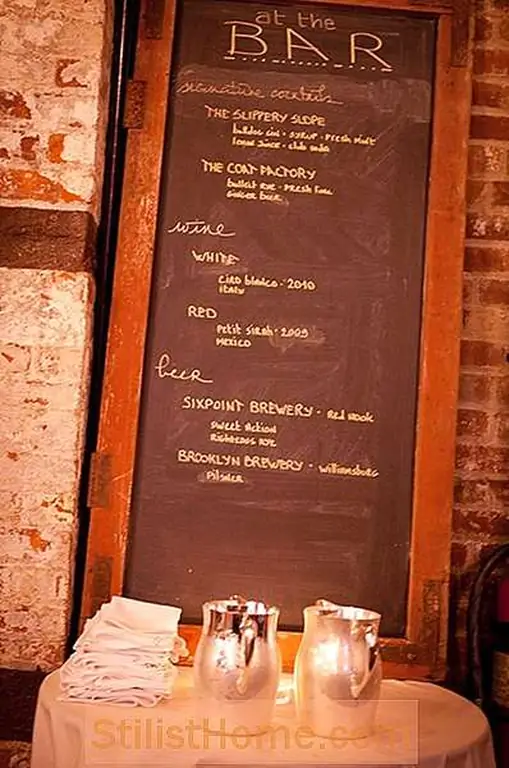 at the
BAR
signature cocktails
THE SLIPPERY SLOPE
bulldog gin · SYRUP · fresh mint
lemon juice · club soda
THE COAT FACTORY
bulleit rye · fresh lime
ginger beer
wine
WHITE
ciro bianco · 2010
italy
RED
Petit Sirah · 2009
MEXICO
beer
SIXPOINT BREWERY · Red Hook
sweet action
RIGHTEOUS RYE
BROOKLYN BREWERY · williamsburg
PILSNER
StilistHome.com